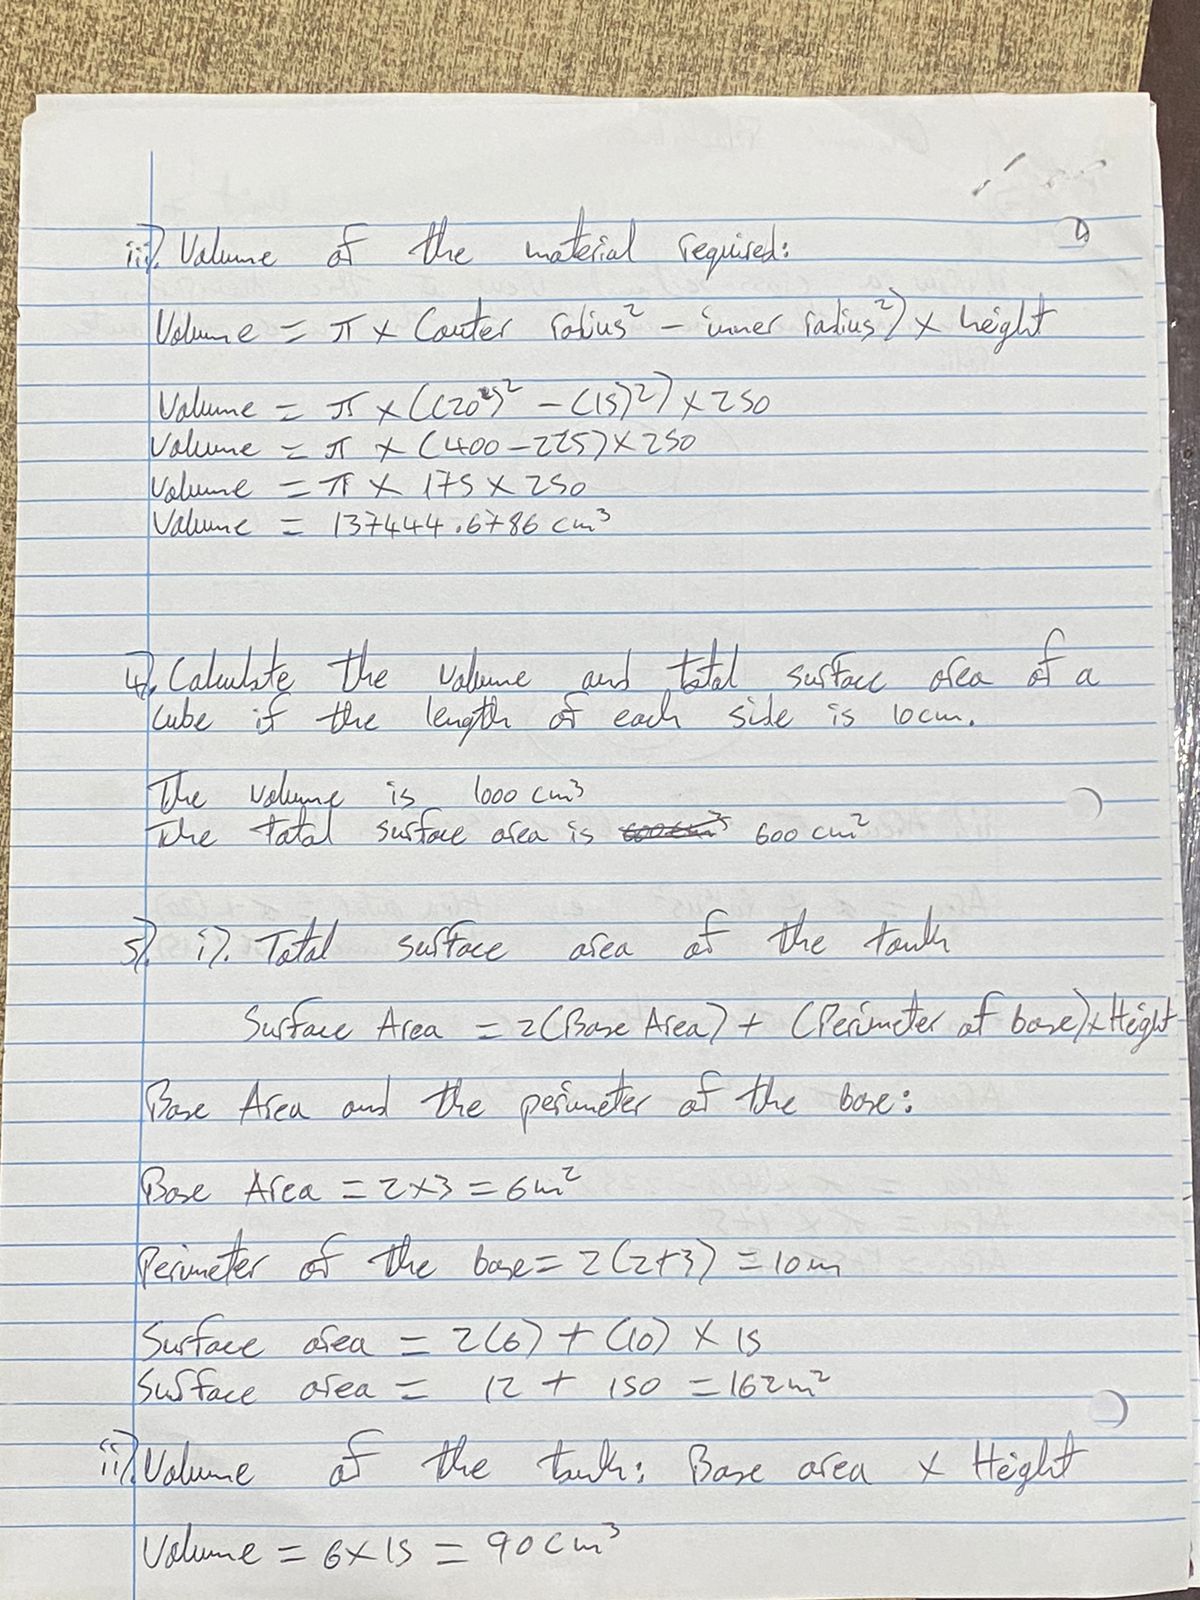 iii). Volume of the material required:
Volume = π × (outer radius² - inner radius²) × height
Volume = π × ((20)² - (15)²) × 250
Volume = π × (400 - 225) × 250
Volume = π × 175 × 250
Volume = 137444.6786 cm³
4). Calculate the volume and total surface area of a
cube if the length of each side is 10cm.
The volume is 1000 cm³
The total surface area is 600 cm³ 600 cm²
5). i). Total surface area of the tank
Surface Area = 2(Base Area) + (Perimeter of base) × Height
Base Area and the perimeter of the base:
Base Area = 2×3 = 6m²
Perimeter of the base = 2(2+3) = 10m
Surface area = 2(6) + (10) × 15
Surface area = 12 + 150 = 162m²
ii). Volume of the tank: Base area × Height
Volume = 6×15 = 90cm³